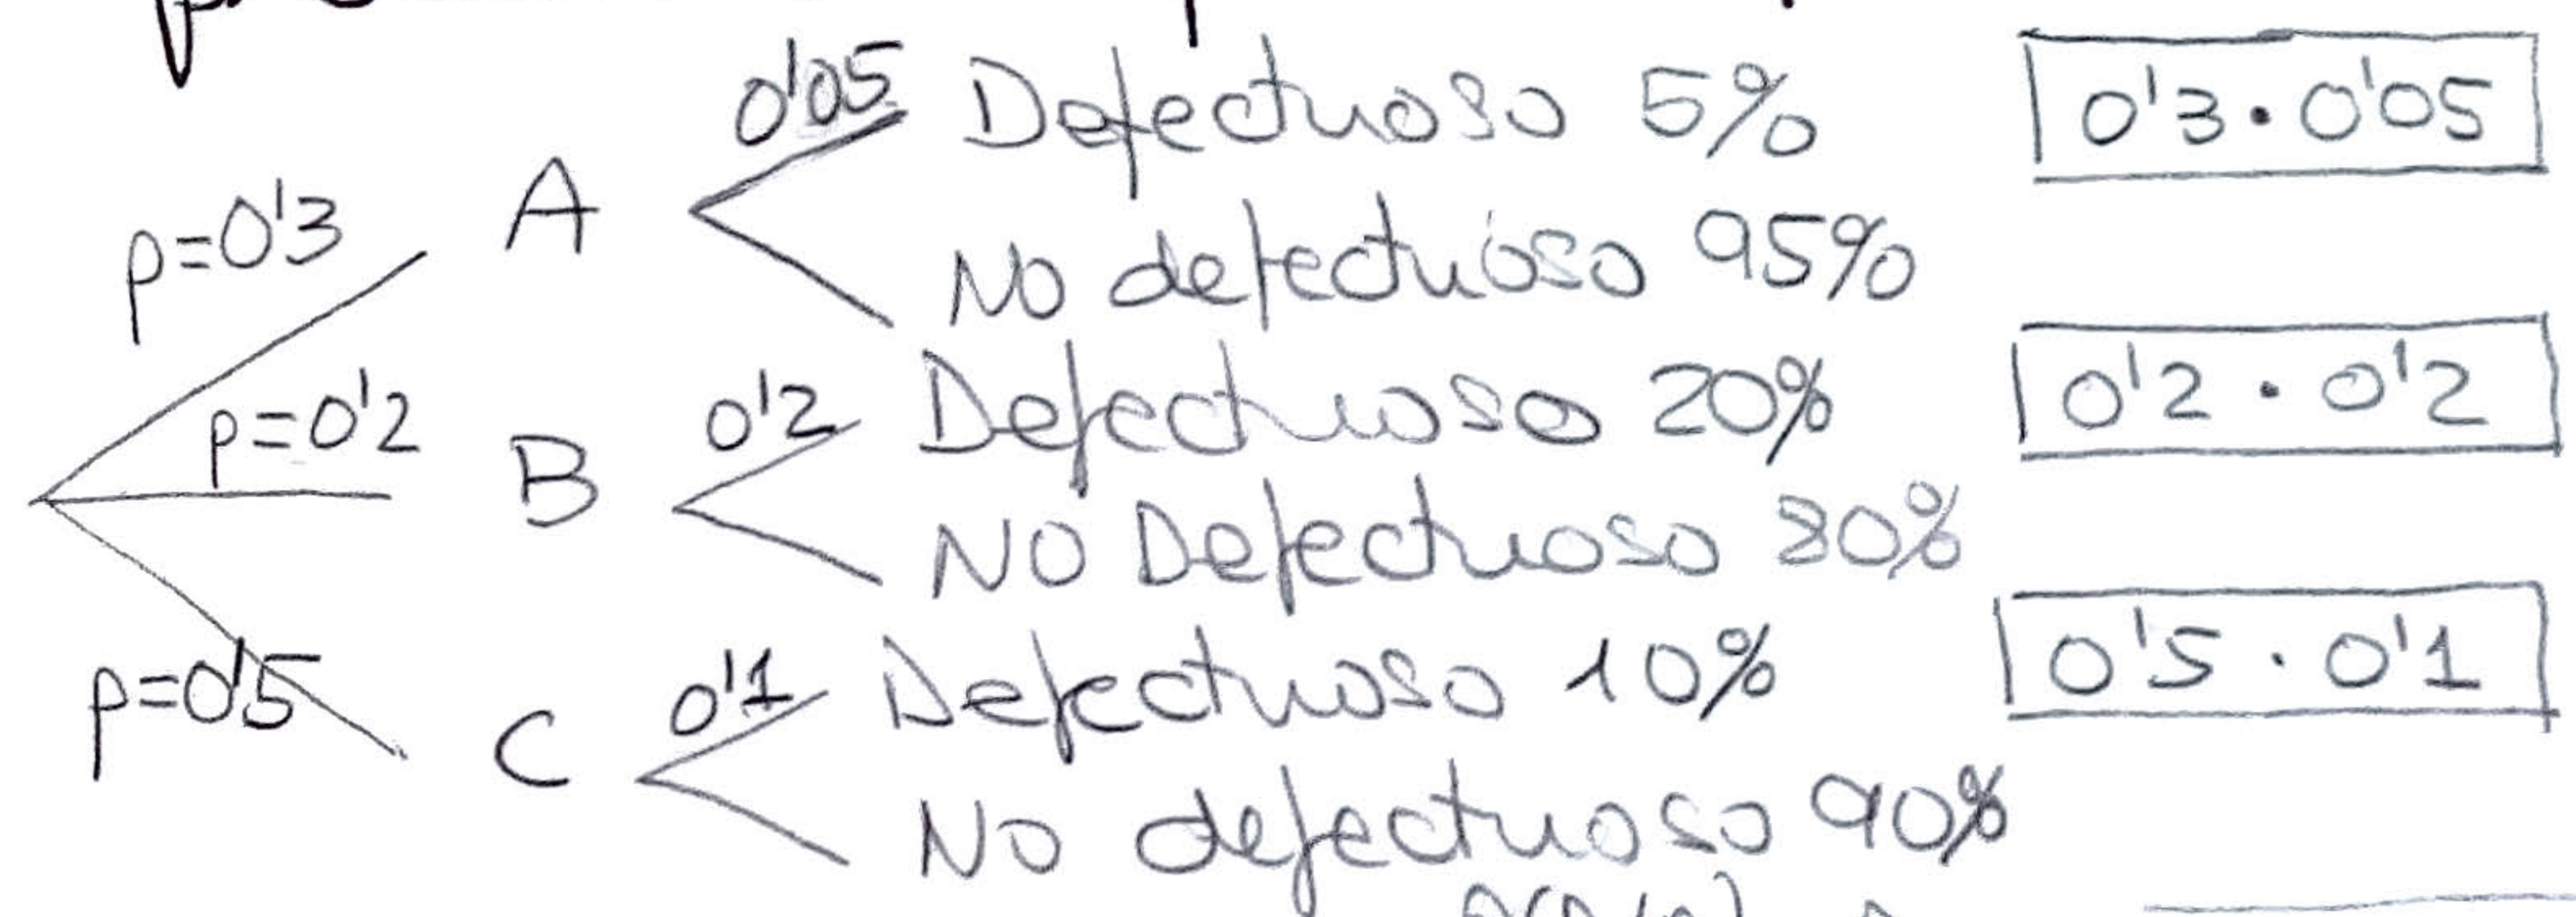 0'05 Defectuoso 5% 0'3 · 0'05
p=0'3 A
No defectuoso 95%
p=0'2 B 0'2 Defectuoso 20% 0'2 · 0'2
NO Defectuoso 80%
p=0'5 C 0'1 Defectuoso 10% 0'5 · 0'1
No defectuoso 90%